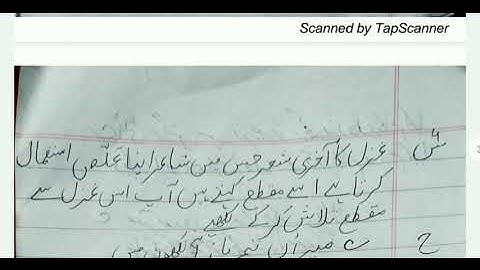 Scanned by TapScanner
س غزل کا آخری شعر جس میں شاعر اپنا تخلص استعمال
کرتا ہے اسے مقطع کہتے ہیں آپ اس غزل سے
مقطع تلاش کر کے لکھیے
ج میر ان نیم باز آنکھوں میں